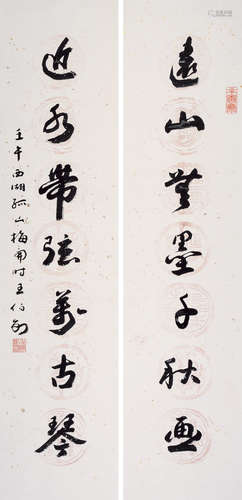 遠山無墨千秋画
近水帶弦萬古琴
壬午西湖孤山梅開時王伯敏